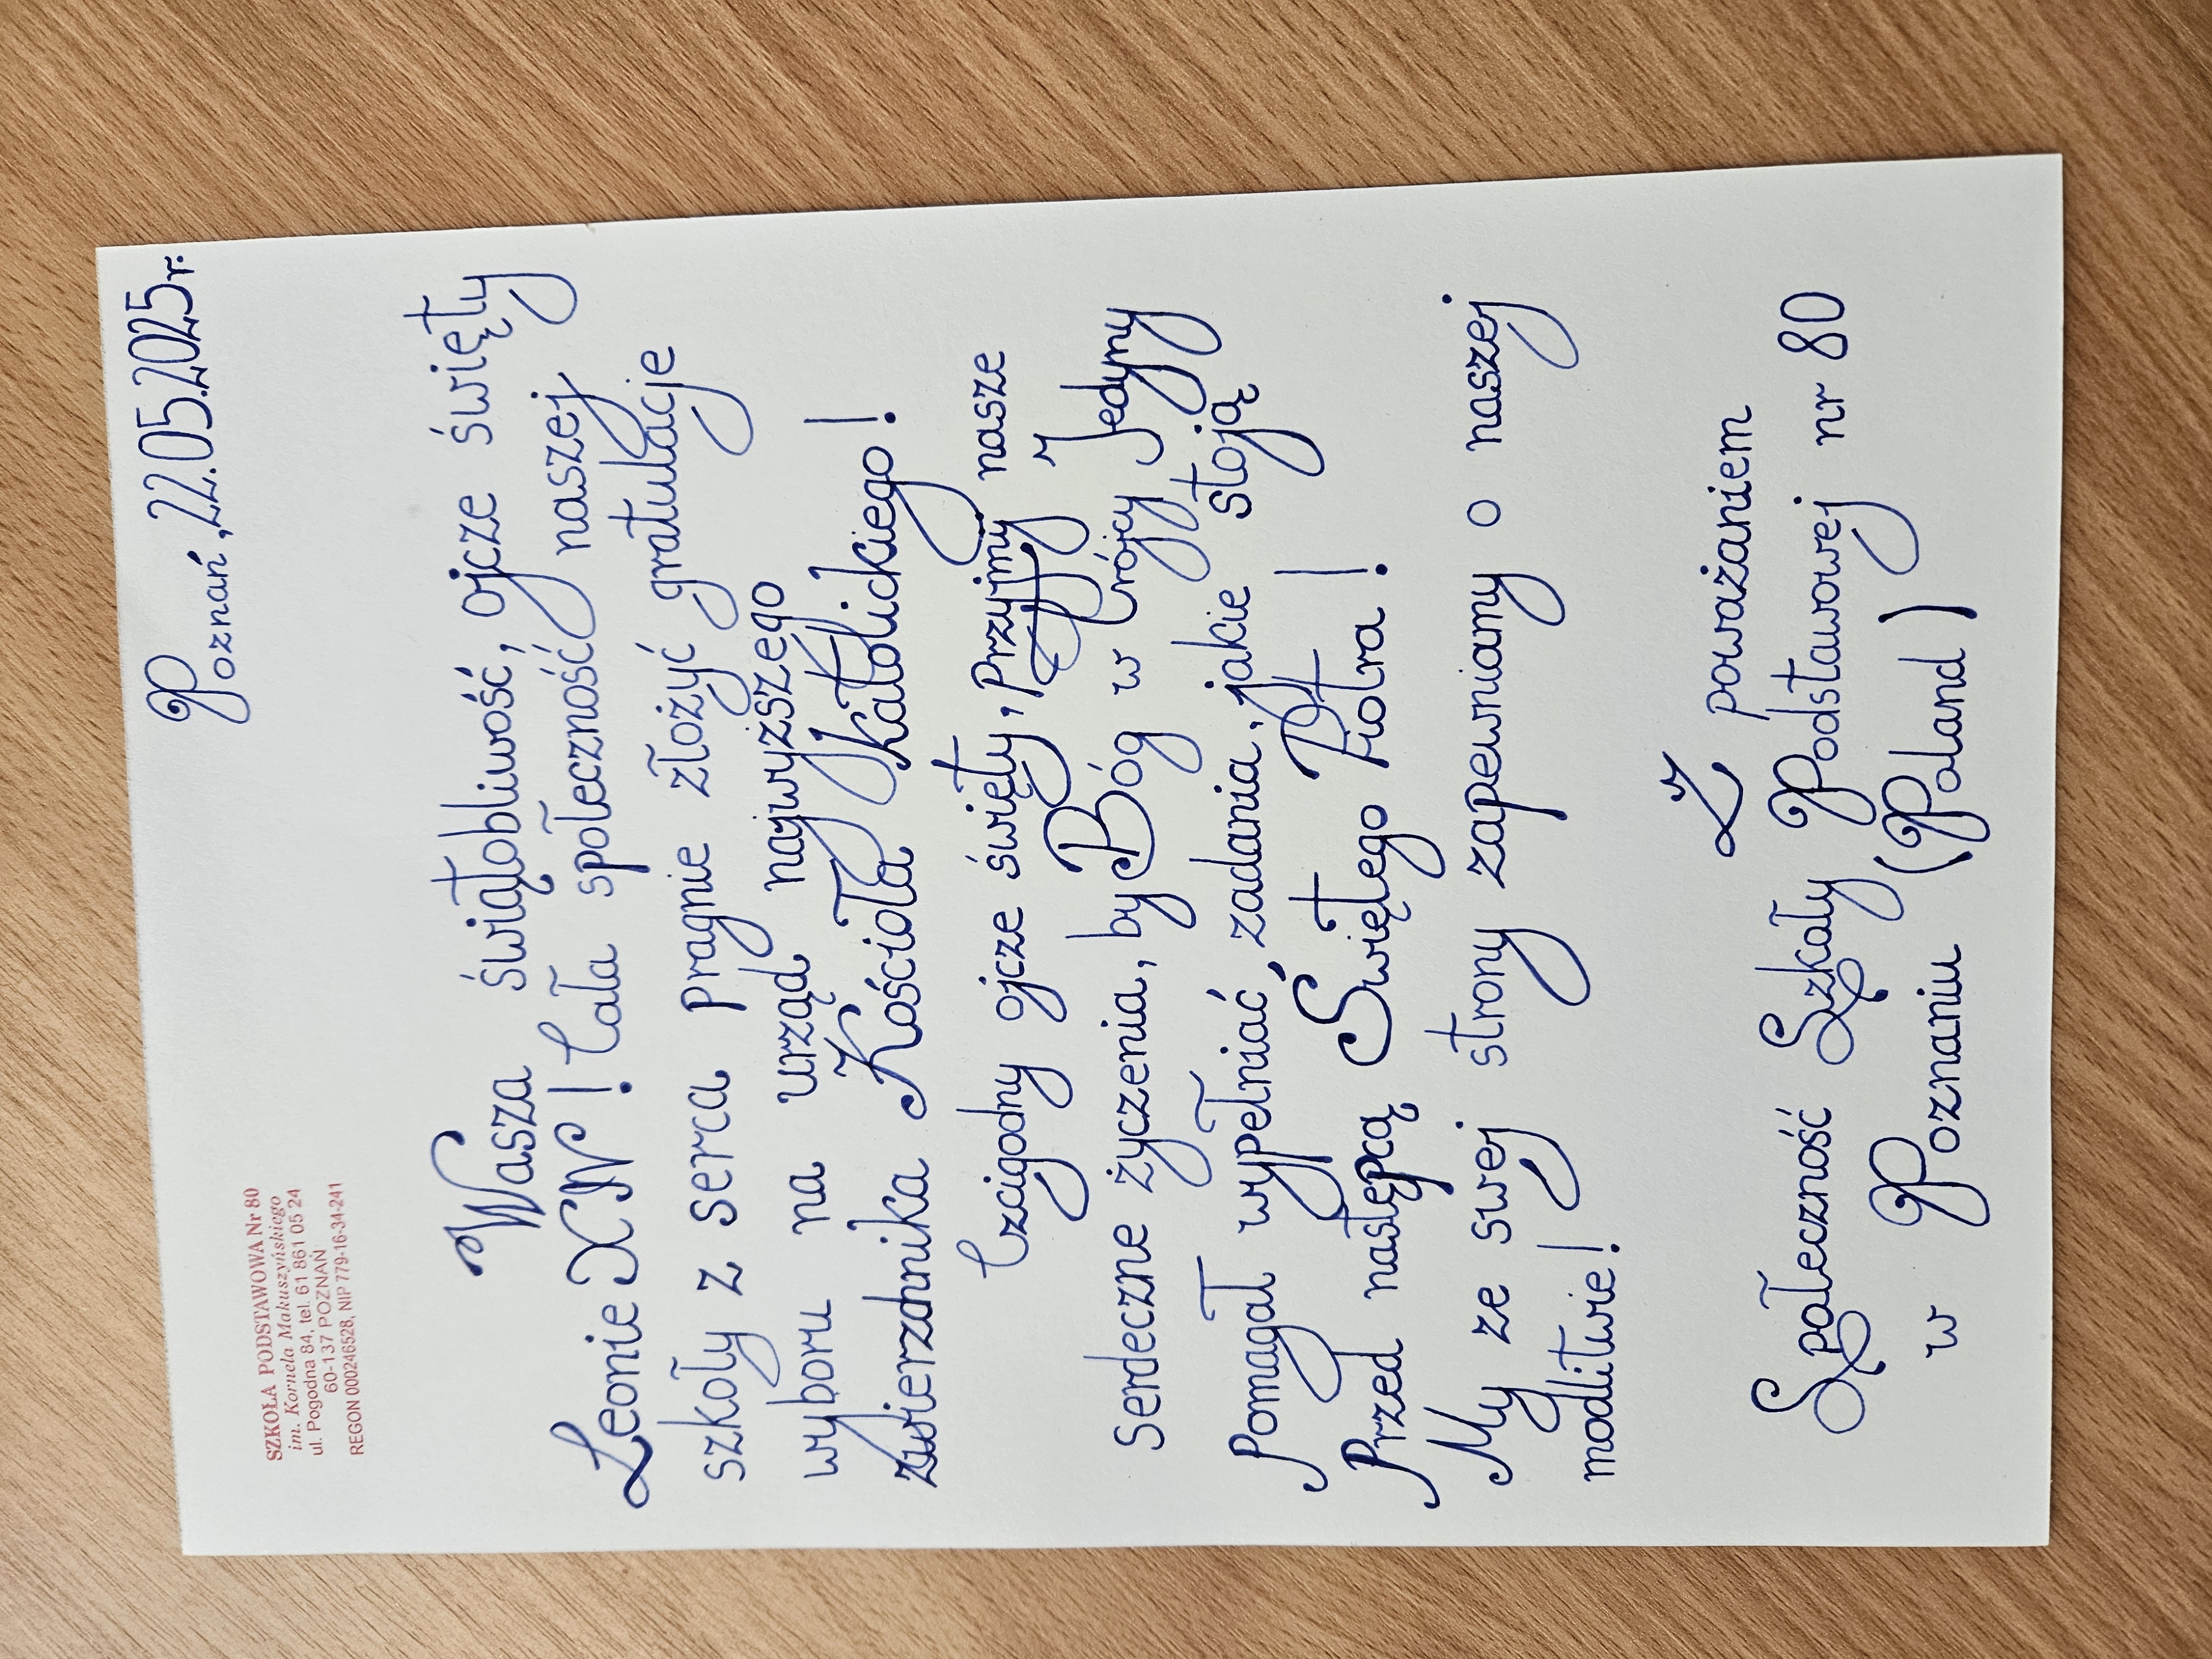 SZKOŁA PODSTAWOWA Nr 80
im. Kornela Makuszyńskiego
ul. Pogodna 84, tel. 61 861 05 24
60-137 POZNAŃ
REGON 000246528, NIP 779-16-34-241
Poznań, 22.05.2025r.
Wasza świątobliwość, ojcze święty
Leonie XIV! Cała społeczność naszej
szkoły z serca pragnie złożyć gratulacje
wyboru na urząd najwyższego
zwierzchnika Kościoła Katolickiego!
Czcigodny ojcze święty, Przyjmij nasze
serdeczne życzenia, by Bóg w Trójcy Jedyny
Pomagał wypełniać zadania, jakie stoją
Przed następcą Świętego Piotra!
My ze swej strony zapewniamy o naszej
modlitwie!
Z poważaniem
Społeczność Szkoły Podstawowej nr 80
w Poznaniu (Poland)